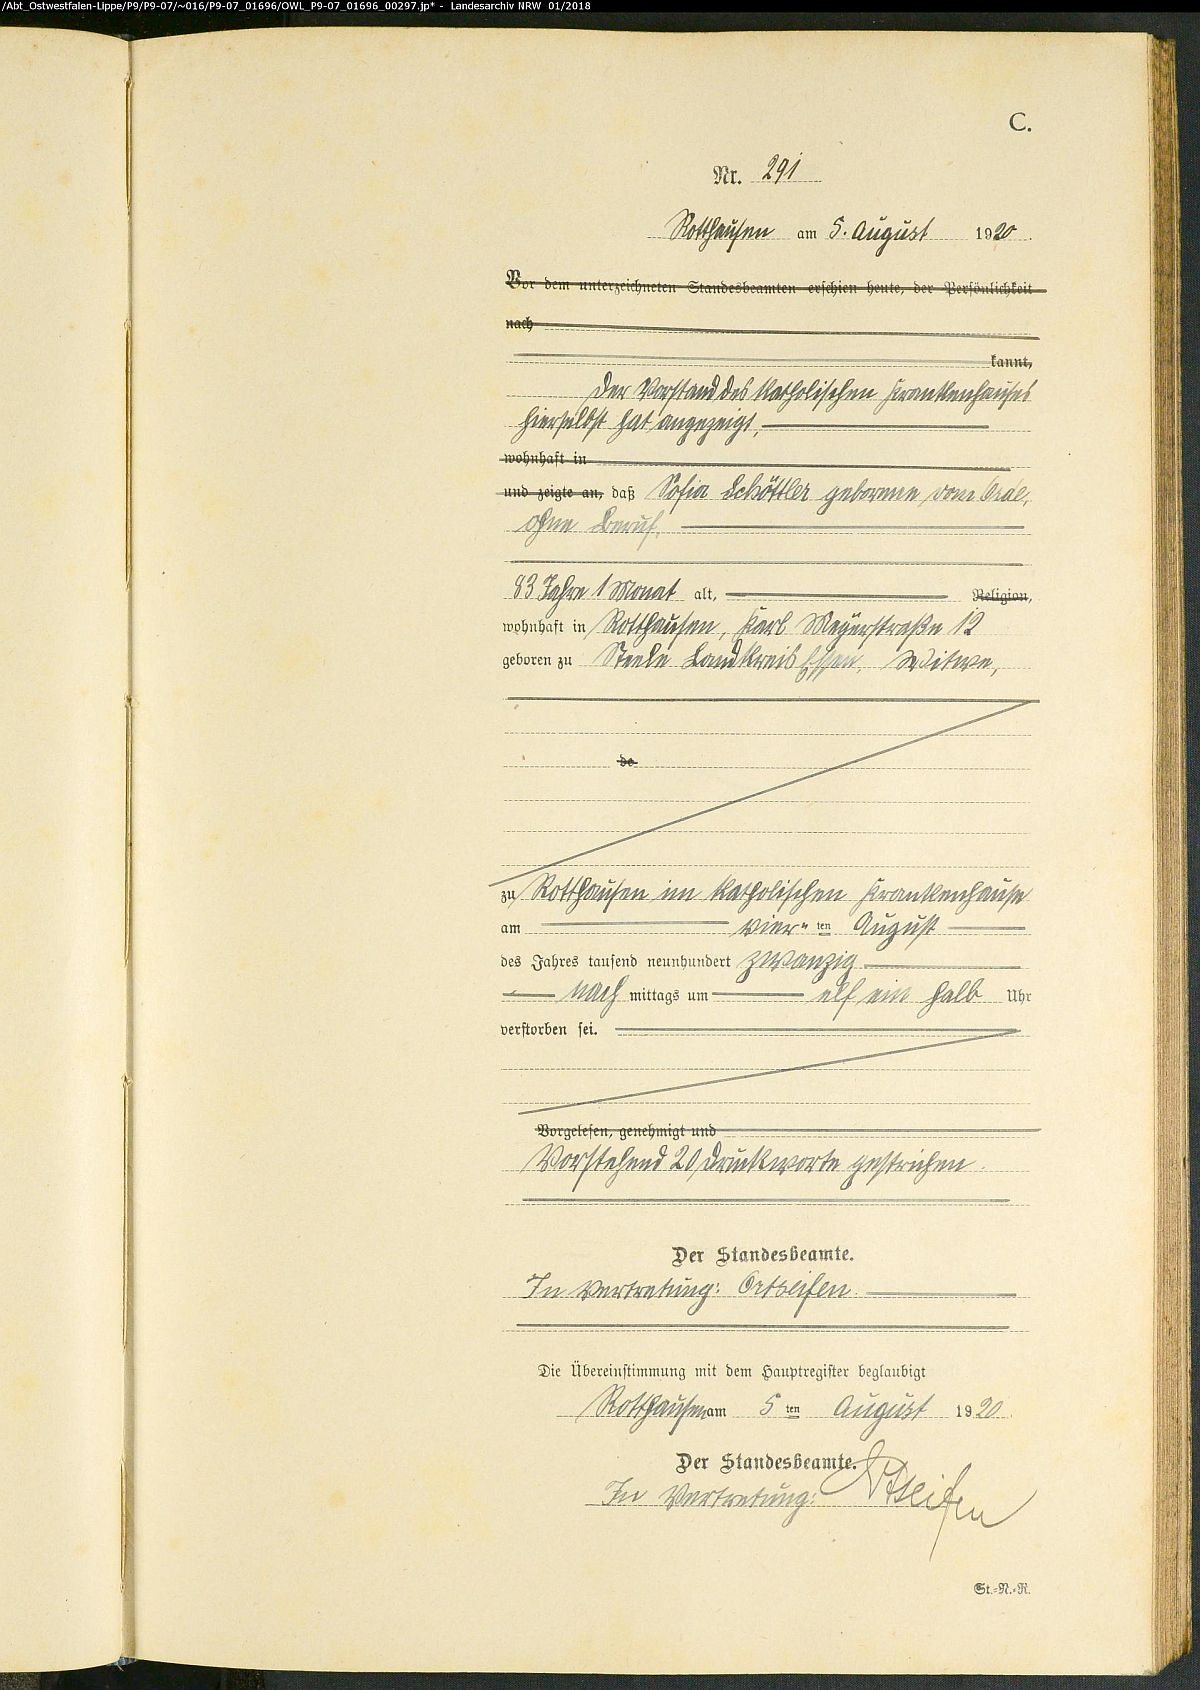 /Abt_Ostwestfalen-Lippe/P9/P9-07/~016/P9-07_01696/OWL_P9-07_01696_00297.jp* - Landesarchiv NRW 01/2018
C.
Nr. 291
Rotthausen am 5. August 1920.
Vor dem unterzeichneten Standesbeamten erschien heute, der Persönlichkeit
nach
kannt,
Der Vorstand des Katholischen Krankenhauses
hierselbst hat angezeigt,
wohnhaft in
und zeigte an, daß Sofia Schöttler geborene vom
ohne Beruf,
83 Jahre 1 Monat alt, Religion,
wohnhaft in Rotthausen, Karl Meyerstraße 12
geboren zu Steele Landkreis Essen, Witwe,
de
zu Rotthausen im Katholischen Krankenhause
am vier- ten August
des Jahres tausend neunhundert zwanzig
nach mittags um elf ein halb Uhr
verstorben sei.
Vorgelesen, genehmigt und
Vorstehend 20 Druckworte gestrichen.
Der Standesbeamte.
In Vertretung: Ortseifen.
Die Übereinstimmung mit dem Hauptregister beglaubigt
Rotthausen am 5 ten August 1920.
Der Standesbeamte.
In Vertretung: Ortseifen
St.-N.-R.